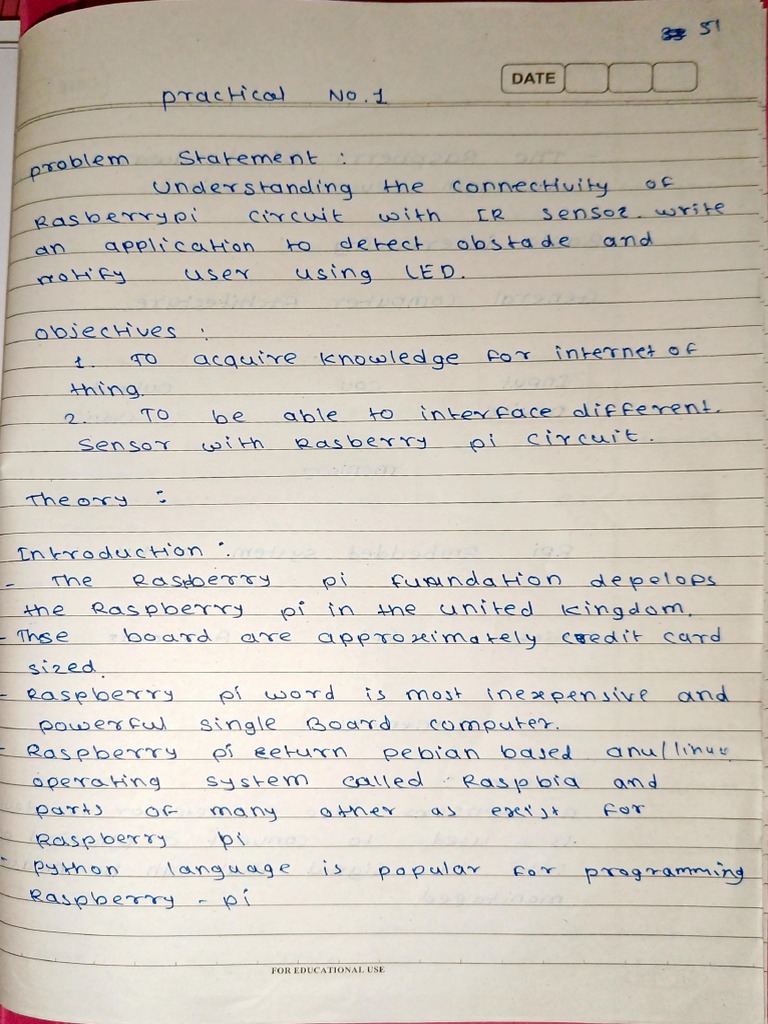 51
DATE
practical No. 1
problem Statement :
Understanding the connectivity of
Rasberrypi circuit with IR sensor. write
an application to detect obstade and
notify user using LED.
objectives :
1. To acquire knowledge for internet of
thing.
2. To be able to interface different.
Sensor with Rasberry pi circuit.
Theory :
Introduction :
- The Raspberry pi fundation depelops
the Raspberry pi in the united kingdom.
- Thse board are approximately credit card
sized.
- Raspberry pi word is most inexpensive and
powerful single Board computer.
- Raspberry pi return pebian based anu/linux
operating system called Raspbia and
parts of many other as exist for
Raspberry pi
- python language is popular for programming
Raspberry - pi
FOR EDUCATIONAL USE